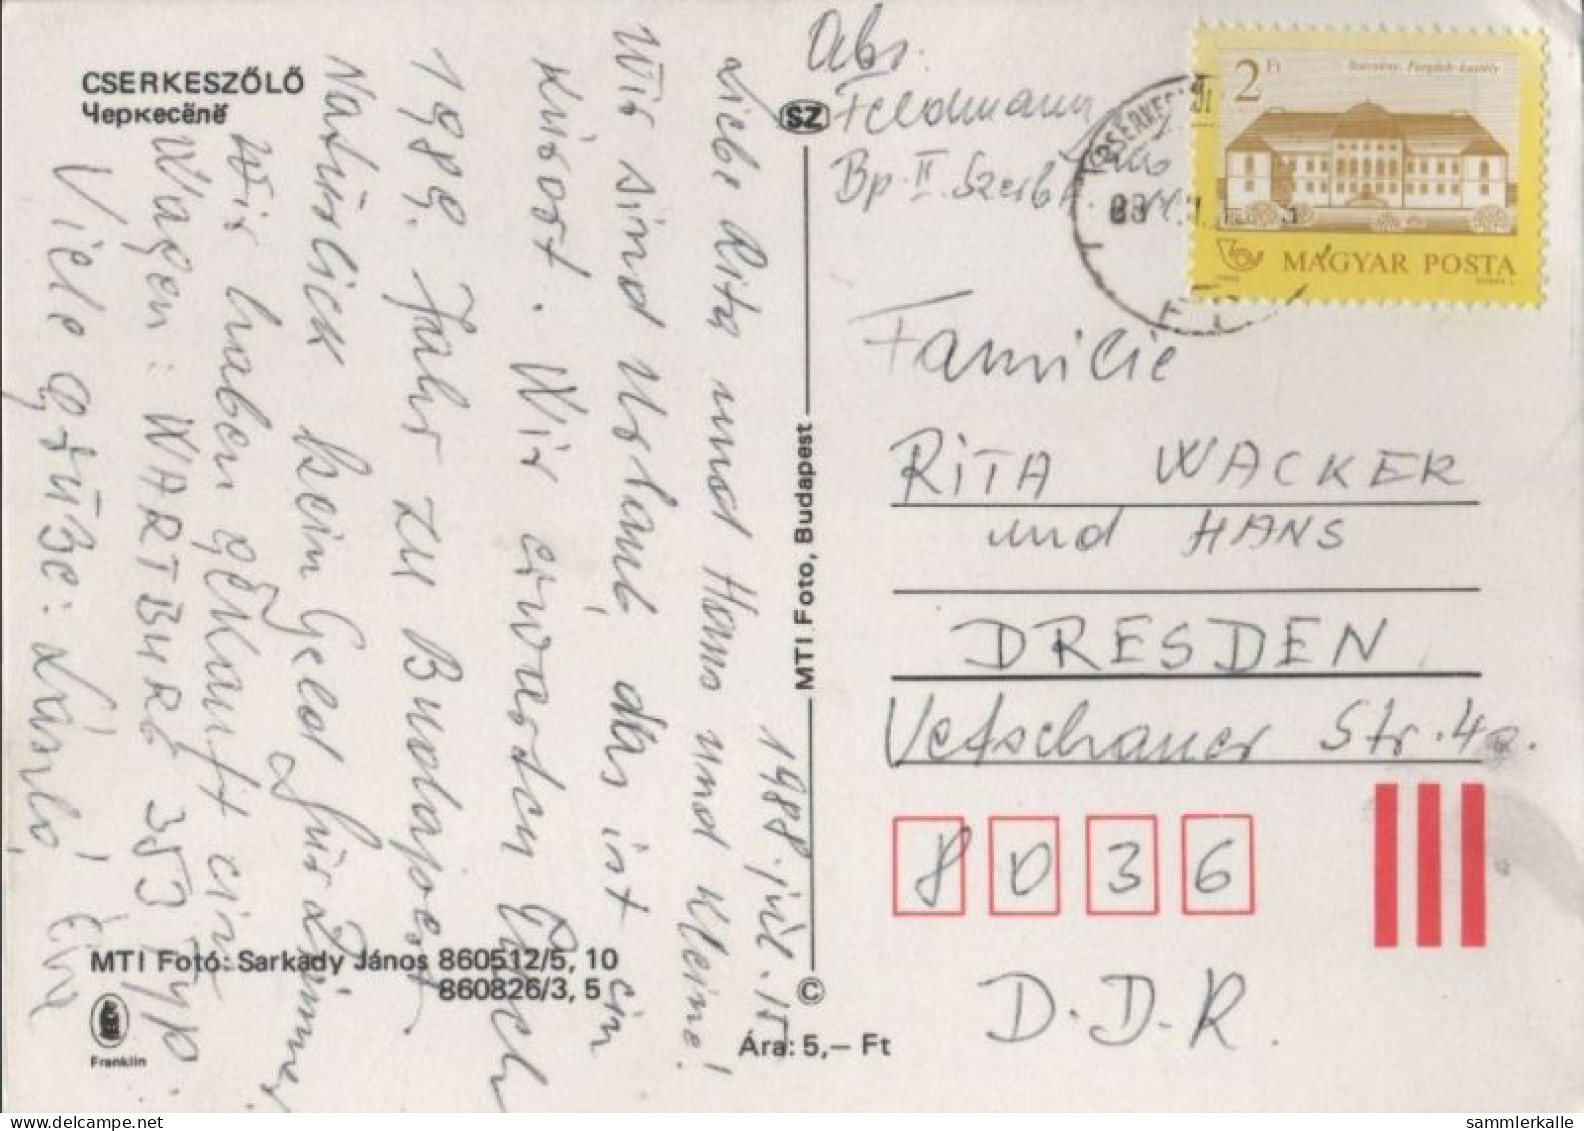 CSERKESZŐLŐ
Черкесёлё
1988. júl. 15
Liebe Rita und Hans und Kleine!
Wir sind Urlaub, das ist ein
Kurort. Wir erwarten Euch
1989. Jahr zu Budapest
Natürlich kein Geld für Zimmer
Wir haben gekauft ein
Wagen: WARTBURG 353 Typ.
Viele Grüße: László, Éva
MTI Fotó: Sarkady János 860512/5, 10
860826/3, 5
Franklin
Ára: 5,— Ft
SZ
MTI Foto, Budapest
©
Abs.
Feldmann
Bp. II. Szerb
CSERKESZ
2 Ft
Szécsény, Forgách-kastély
MAGYAR POSTA
Familie
RITA WACKER
und HANS
DRESDEN
Vetschauer Str. 4
8036
D.D.R.
sammlerkalle